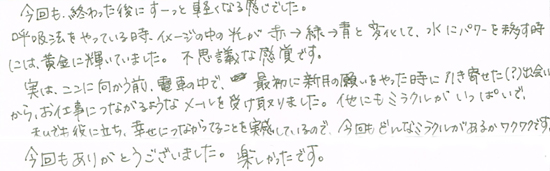 今回も、終わった後にすーっと軽くなる感じでした。
呼吸法をやっている時、イメージの中の光が赤→緑→青と変化して、水にパワーを移す時
には、黄金に輝いていました。不思議な感覚です。
実は、ここに向かう前、電車の中で、最初に新月の願いをやった時に引き寄せた(?)出会い
から、お仕事につながるようなメールを受け取りました。他にもミラクルがいっぱいで、
役に立ち、幸せにつながってることを実感しているので、今回もどんなミラクルがあるかワクワクです。
今回もありがとうございました。楽しかったです。